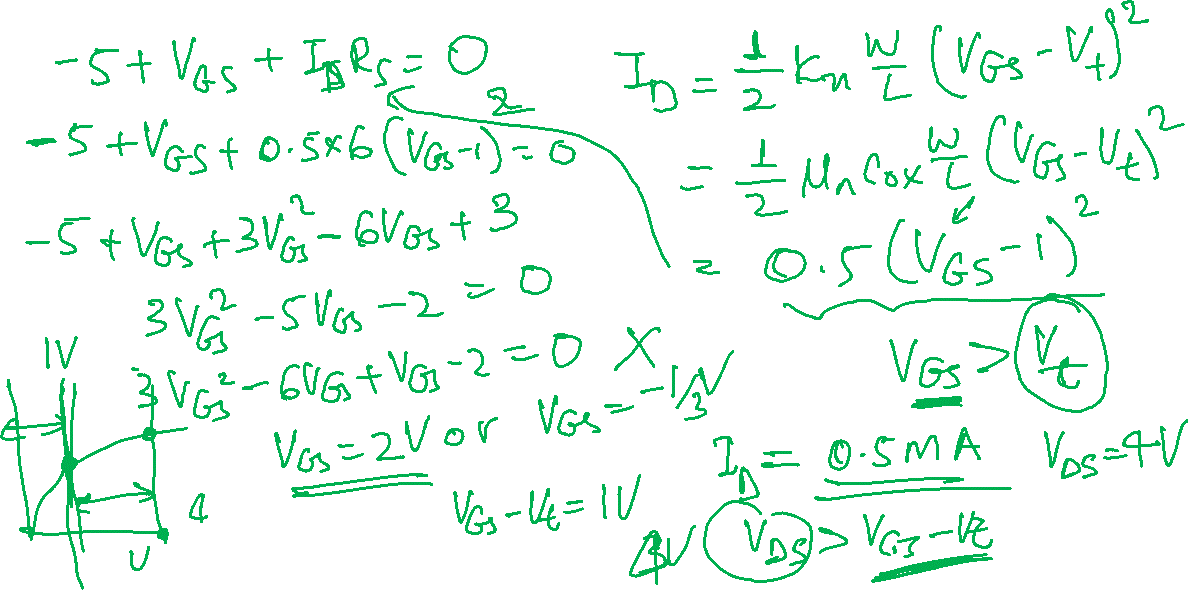 -5 + V_GS + I_D R_S = 0
-5 + V_GS + 0.5×6 (V_GS - 1)^2 = 0
-5 + V_GS + 3V_GS^2 - 6V_GS + 3
3V_GS^2 - 5V_GS - 2 = 0
3V_GS^2 - 6V_GS + V_GS - 2 = 0
V_GS = 2V or V_GS = -1/3 V X
V_GS - V_t = 1V
1V
4
V
I_D = 1/2 K_n W/L (V_GS - V_t)^2
= 1/2 μ_n Cox W/L (V_GS - V_t)^2
= 0.5 (V_GS - 1)^2
V_GS > V_t
I_D = 0.5 MA V_DS = 4V
V_DS > V_GS - V_t